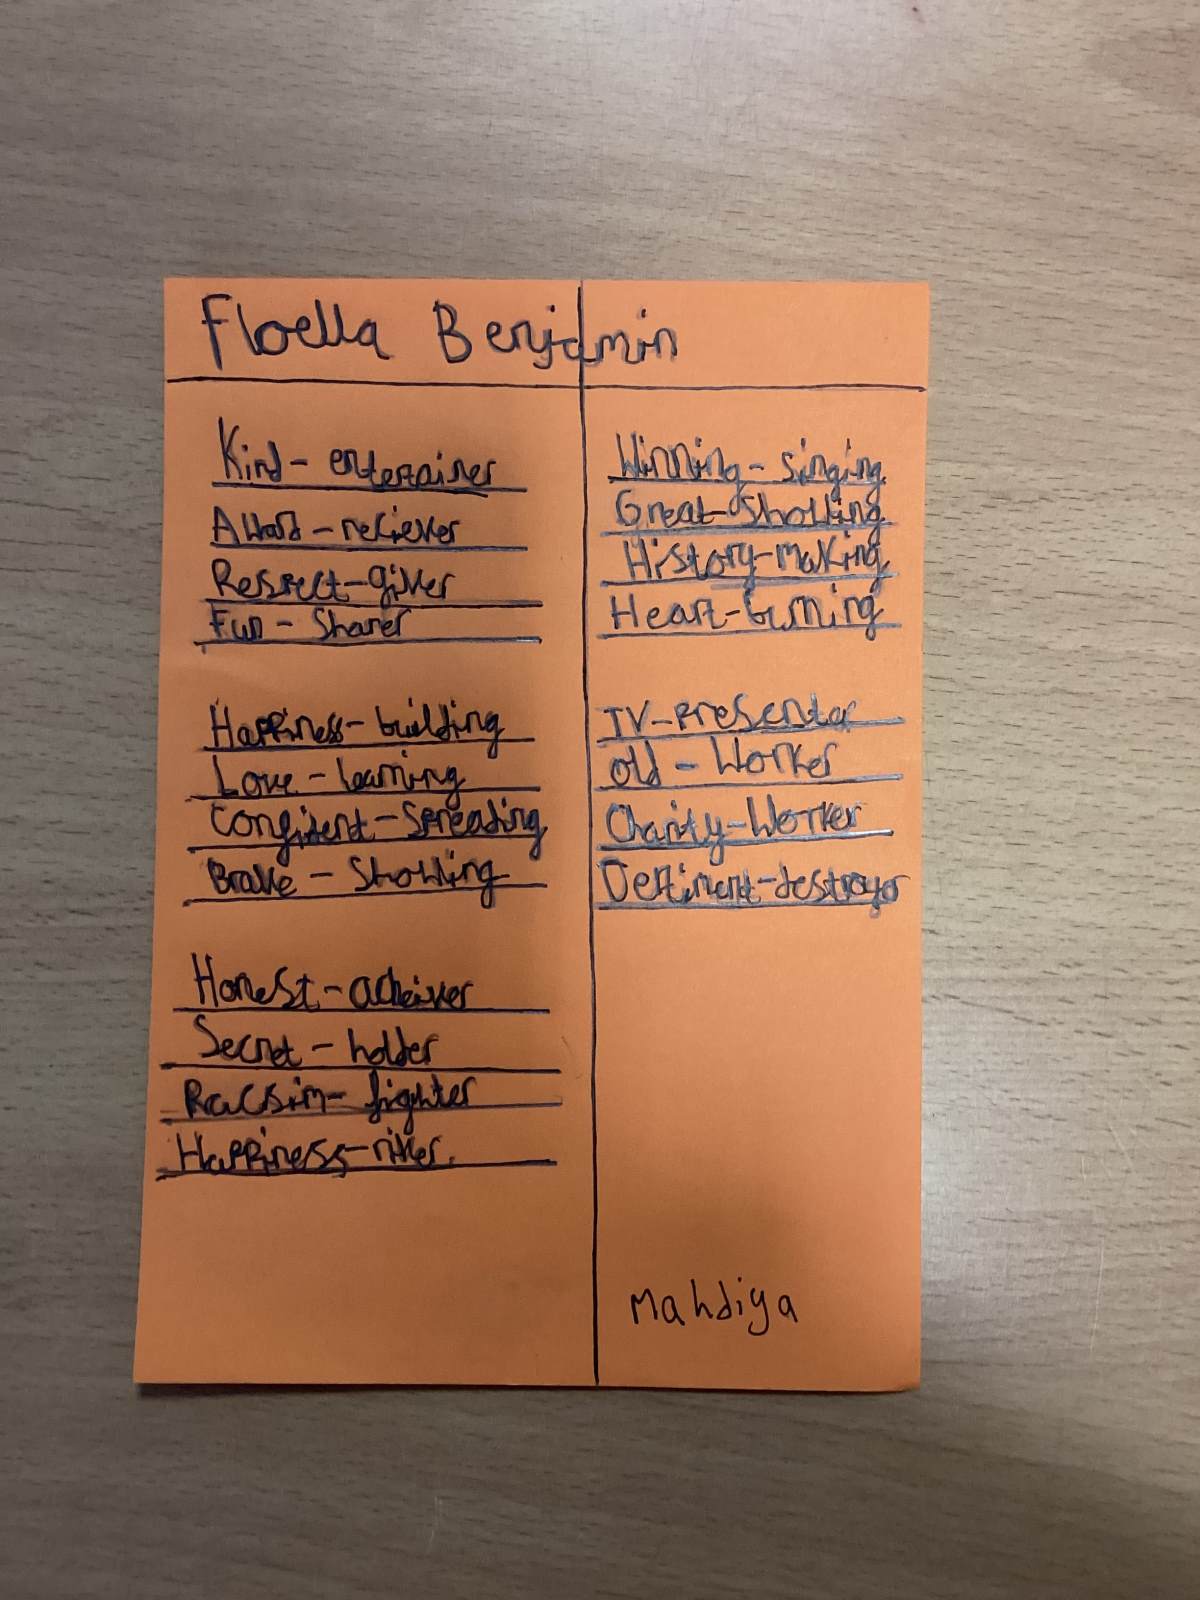 Floella Benjamin
Kind - entertainer
Award - reciever
Respect - giver
Fun - Sharer
Happiness - building
Love - learning
Confident - Spreading
Brave - Showing
Honest - acheiver
Secret - holder
Racsim - fighter
Happiness - river
Winning - singing
Great - Showing
History - making
Heart - burning
TV - Presentor
Old - Worker
Charity - Worker
destroyer
Mahdiya